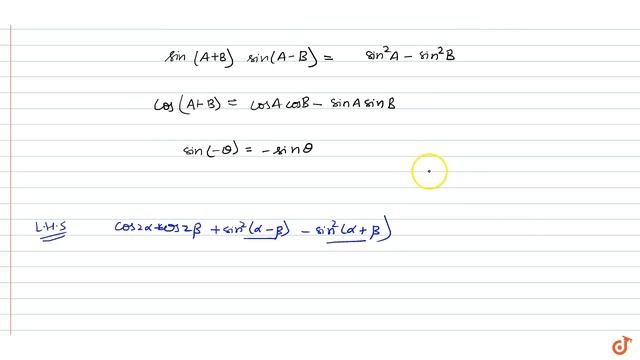 sin (A+B) sin(A-B) = sin²A - sin²B
cos(A+B) = cosA cosB - sinA sinB
sin(-θ) = - sinθ
L.H.S cos2α cos2β + sin²(α-β) - sin²(α+β)